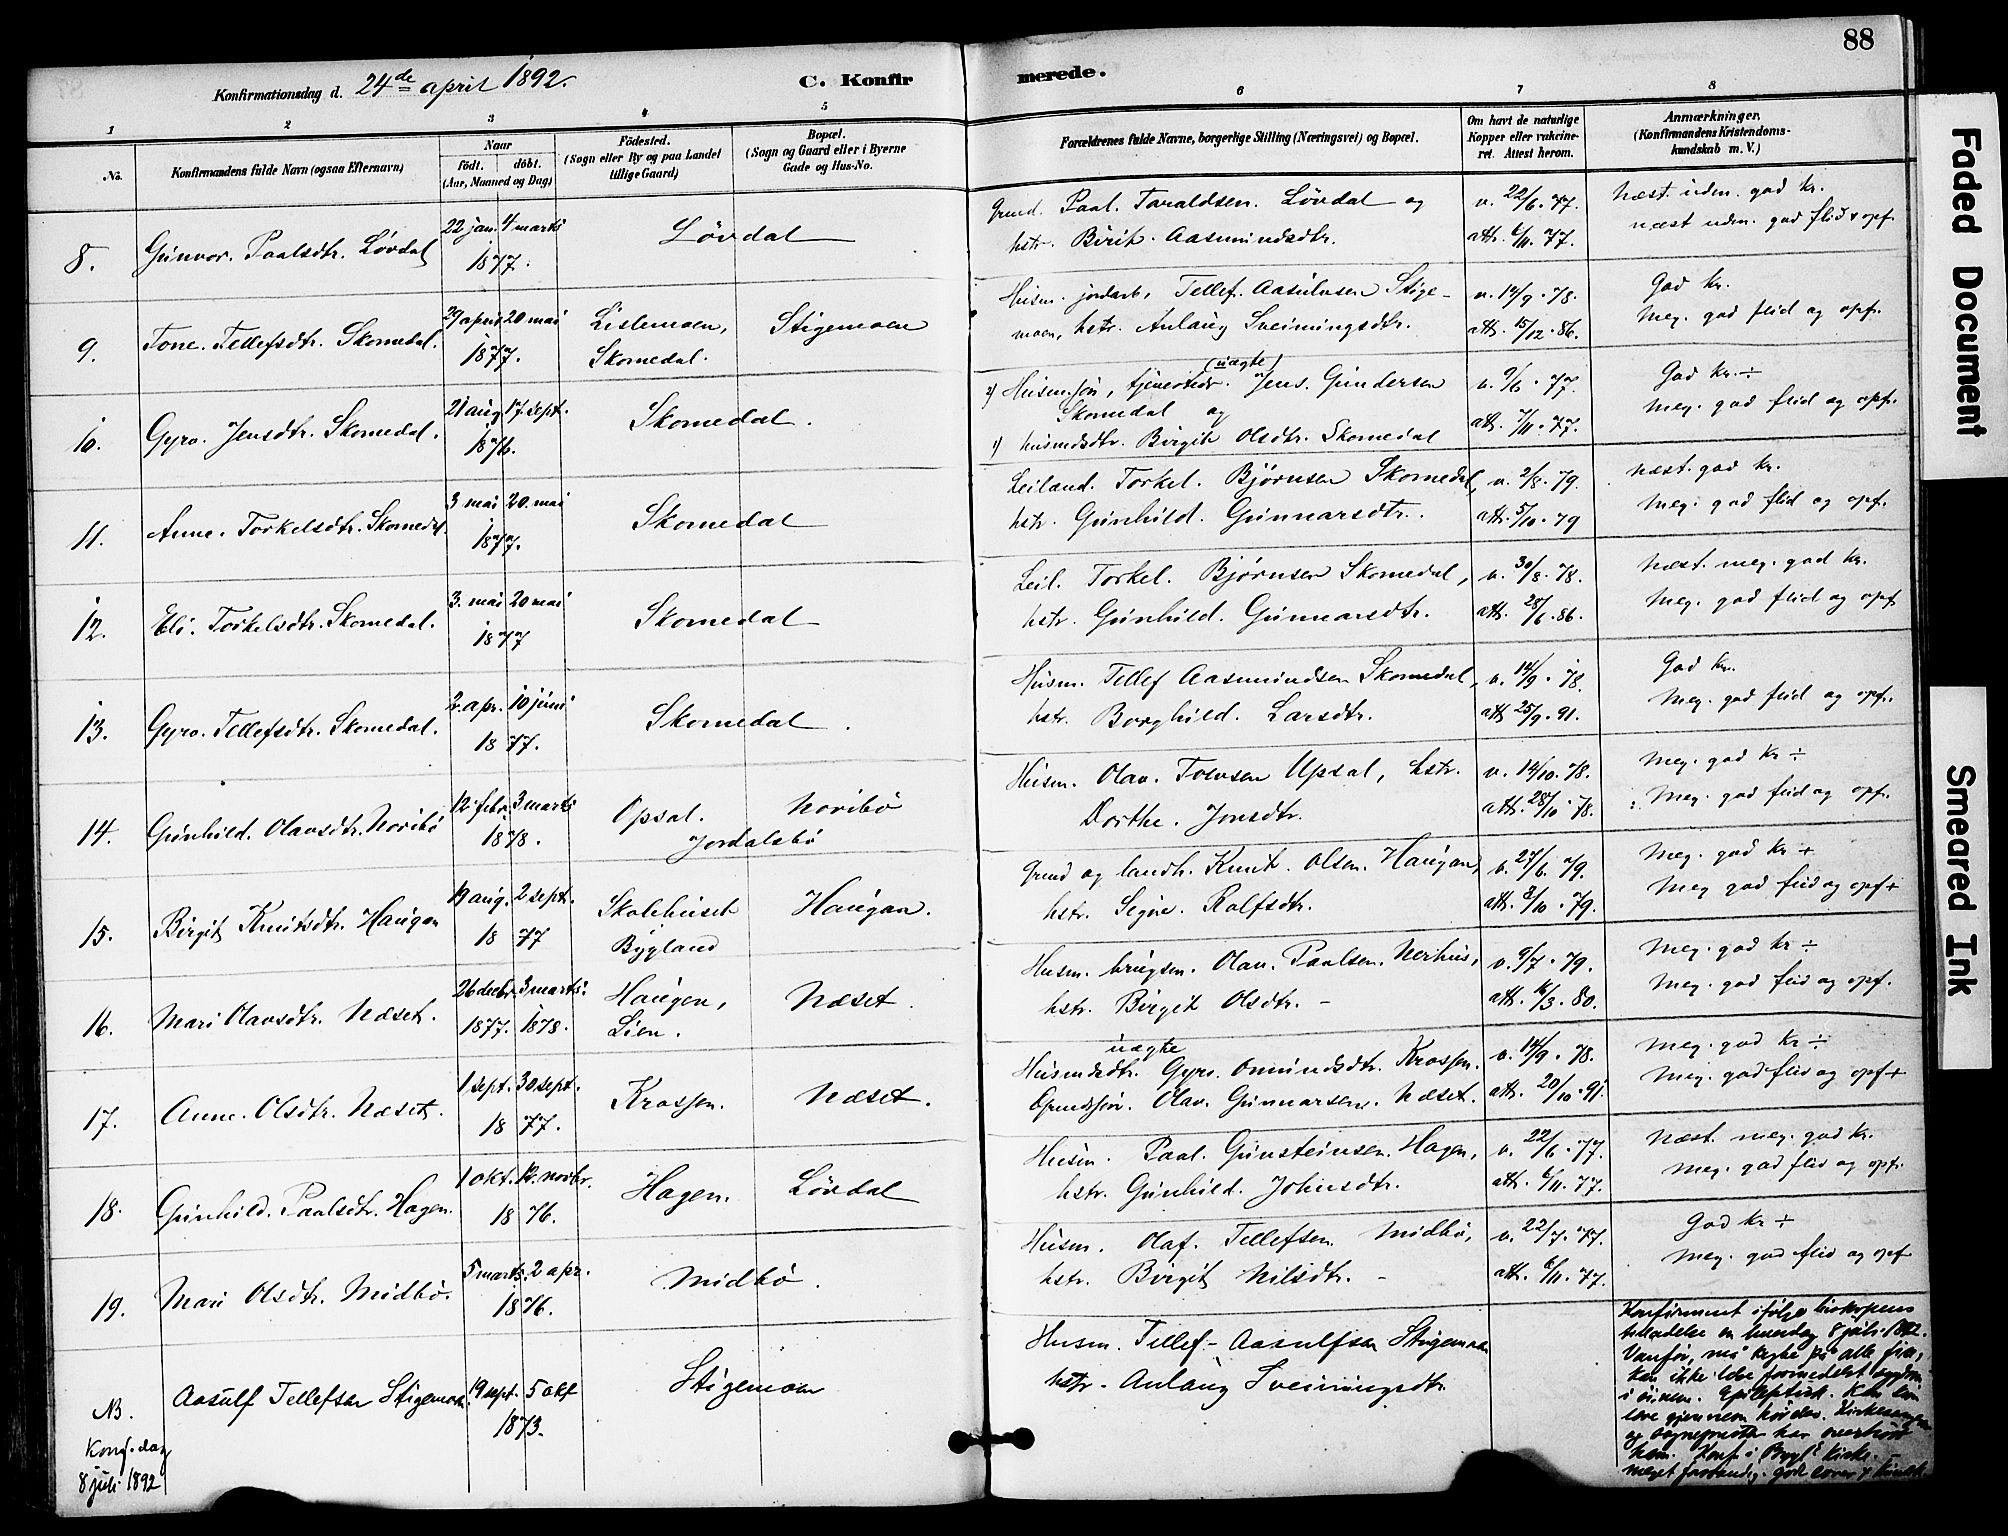 88
Konfirmationsdag d. 24de april 1892.
C. Konfirmerede.
1 2 3 4 5 6 7 8
No.
Konfirmandens fulde Navn (ogsaa Efternavn)
Naar
födt. döbt.
(Aar, Maaned og Dag)
Födested.
(Sogn eller By og paa Landet
tillige Gaard)
Bopæl.
(Sogn og Gaard eller i Byerne
Gade og Hus-No.
Forældrenes fulde Navne, borgerlige Stilling (Næringsvei) og Bopæl.
Om havt de naturlige
Kopper eller vakcine-
ret. Attest herom.
Anmærkninger.
(Konfirmandens Kristendoms-
kundskab m. V.)
8. Gunvor. Paalsdtr. Lövdal 22 jan. 4 marts 1877. Lövdal
Grund. Paal. Taraldsen. Lövdal og
hstr. Birit. Aasmundsdtr.
v. 22/6. 77.
att. 6/11. 77.
Næst. udm. god kr.
næst udm. god flid & opf.
9. Tone. Tellefsdtr. Skomedal. 29 april 20 mai 1877. Listemoen, Skomedal. Stigemoen
Husm. jordarb. Tellef. Aasulvsen Stige-
moen, hstr. Anlaug Sveinungsdtr.
v. 14/9. 78.
att. 15/12. 86.
God kr.
Meg. god flid og opf.
10. Gyro. Jensdtr. Skomedal. 21 aug. 17 sept. 1876. Skomedal.
(uægte)
2) Husm.sön, tjenestedr. Jens. Gundersen
Skomedal og
1) husmdsdtr. Birgit Olsdtr. Skomedal
v. 9/6. 77.
att. 7/11. 77.
God kr. ÷
Meg. god flid og opf.
11. Anne. Torkelsdtr. Skomedal. 3 mai 20 mai 1877. Skomedal
Leiland. Torkel. Björnsen Skomedal,
hstr. Gunhild. Gunnarsdtr.
v. 2/8. 79.
att. 5/10. 79
Næst. god kr.
Meg. god flid og opf.
12. Eli. Torkelsdtr. Skomedal. 3. mai 20 mai 1877 Skomedal
Leil. Torkel. Björnsen Skomedal,
hstr. Gunhild. Gunnarsdtr.
v. 30/8. 78.
att. 28/6. 86.
Næst. meg. god kr.
Meg. god flid og opf
13. Gyro. Tellefsdtr. Skomedal. 2. apr. 10 juni 1877. Skomedal.
Husm. Tellef Aasmundsen Skomedal,
hstr. Borghild. Larsdtr.
v. 14/9. 78.
att. 25/9. 91.
God kr.
Meg. god flid og opf.
14. Gunhild. Olavsdtr. Noribö 12. febr. 3 marts 1878. Opsal. Noribö
Jordalsbö
Husm. Olav. Tolvsen Upsal, hstr.
Dorthe. Jonsdtr.
v. 14/10. 78.
att. 28/10. 78.
Meg. god kr ÷
Meg. god flid og opf.
15. Birgit Knutsdtr. Haugan 19 aug. 2 sept. 1877 Skolehuset Bygland Haugan.
Grund og landh. Knut. Olsen. Haugan,
hstr. Signe. Rolfsdtr.
v. 27/6. 79.
att. 8/10. 79.
Meg. god kr +
Meg god flid og opf +
16. Mari Olavsdtr. Næset. 26 decbr. 3 marts. 1877. 1878. Haugen, Lien. Næset.
Husm. brugsm. Olav. Paalsen. Nerhus,
hstr. Birgit Olsdtr. -
v. 9/7. 79.
att. 16/3. 80.
Meg. god kr ÷
Meg. god flid og opf.
17. Anne. Olsdtr. Næset. 1 sept. 30 sept. 1877. Krossen. Næset.
uægte
Husmdsdtr. Gyro. Omundsdtr. Krossen.
Grundssön. Olav. Gunnarsen. Næset.
v. 14/9. 78.
att. 20/10. 91.
Meg. god kr ÷
Meg. god flid og opf +
18. Gunhild. Paalsdtr. Hagen. 1 okt. 12. novbr. 1876. Hagen. Lövdal
Husm. Paal. Gunsteinsen. Hagen,
hstr. Gunhild. Johnsdtr.
v. 22/6. 77.
att. 6/11. 77.
Næst. meg. god kr.
Meg. god flid og opf.
19. Mari Olsdtr. Midbö. 5 marts. 2 apr. 1876. Midbö.
Husm. Olaf. Tellefsen Midbö,
hstr. Birgit Nilsdtr. -
v. 22/7. 77.
att. 6/11. 77.
God kr ÷
Meg. god flid og opf
NB. Aasulf Tellefsen Stigemoen. 19 sept. 5 okt 1873. Stigemoen
Konf. dag
8 juli 1892
Husm. Tellef - Aasulfsen Stigemoen
hstr. Anlaug Sveinungsdtr.
Konfirmert ifölge biskopens
tilladelse en hverdag 8 juli 1892.
Vanför, må krybe på alle fire,
kan ikke læse formedelst sygdom
i öinene. Epileptisk. Kun
love gjennem hörelse. Kirkesanger
og sogneprest har overhört
ham. Konf. i Bygl. Kirke.
meget forstandig. gode